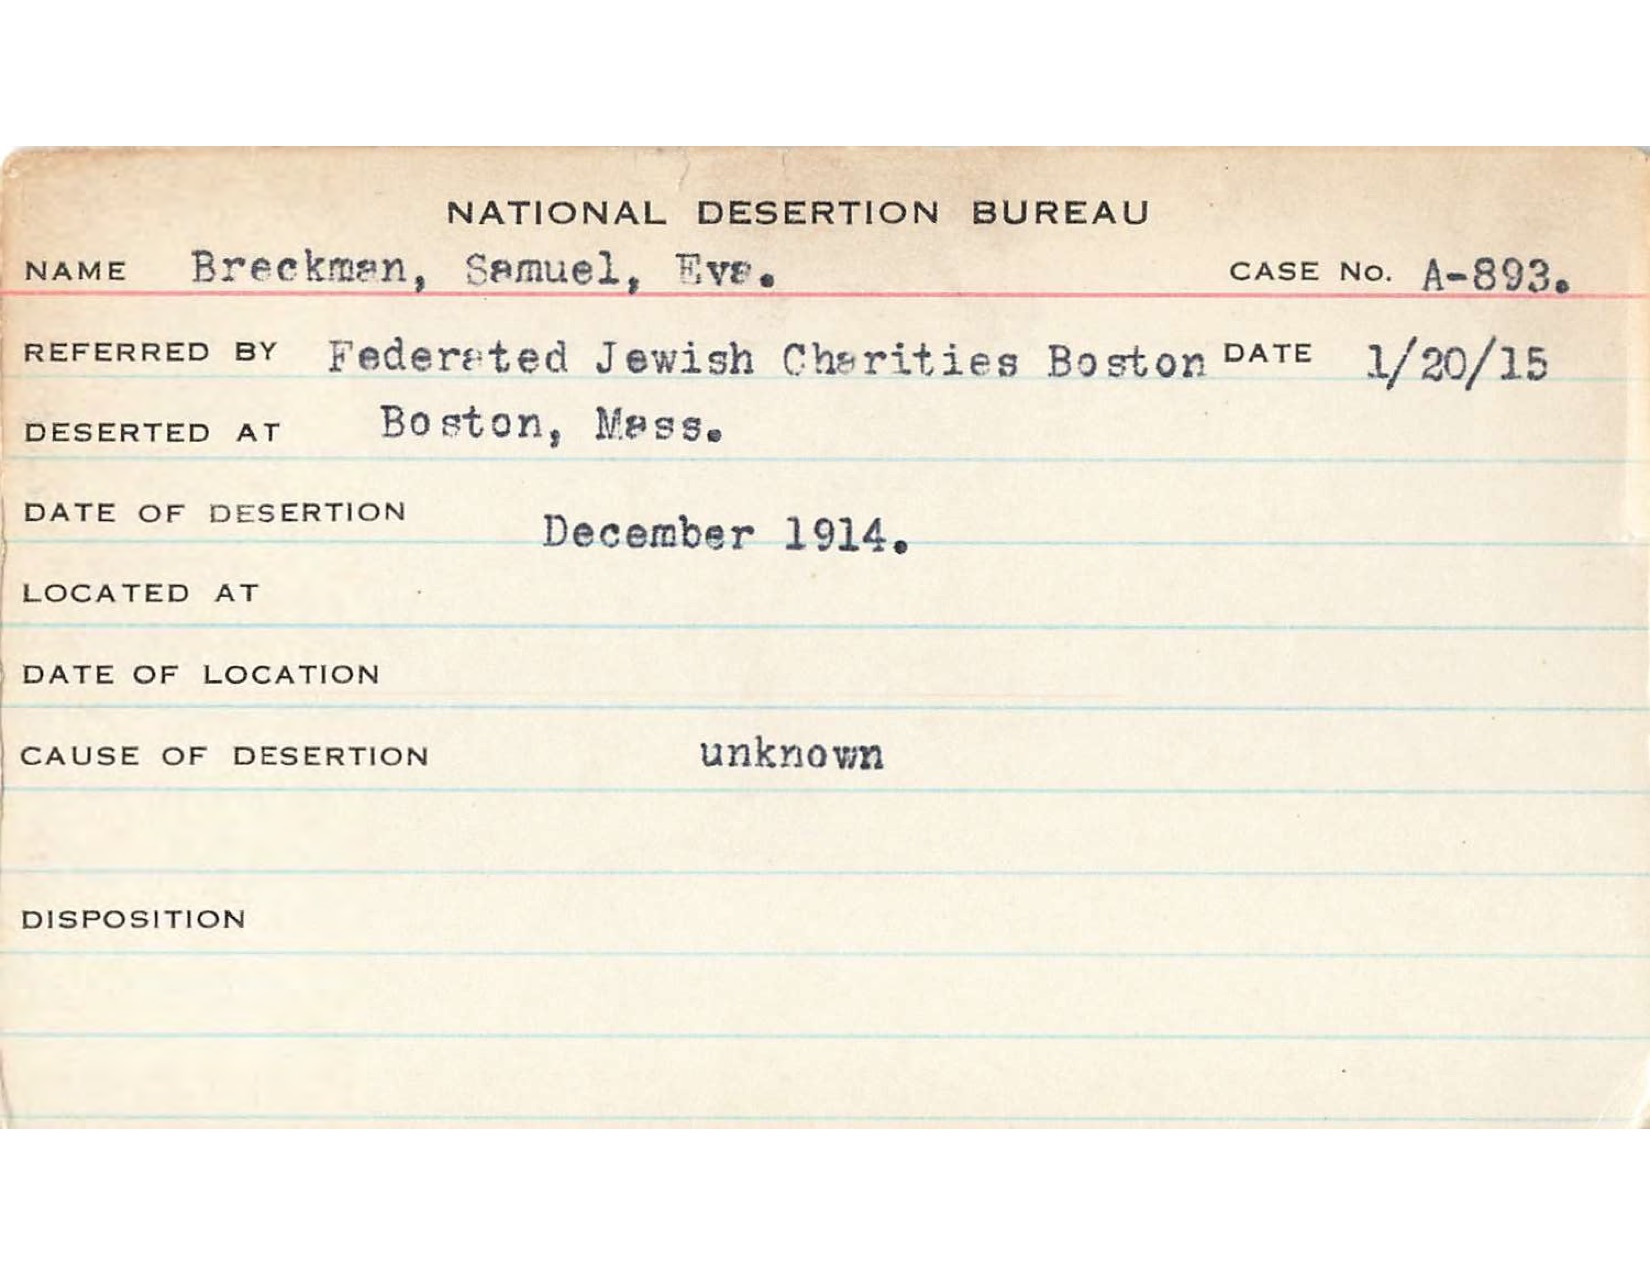 NATIONAL DESERTION BUREAU
NAME Breckman, Samuel, Eva. CASE No. A-893.
REFERRED BY Federated Jewish Charities Boston DATE 1/20/15
DESERTED AT Boston, Mass.
DATE OF DESERTION December 1914.
LOCATED AT
DATE OF LOCATION
CAUSE OF DESERTION unknown
DISPOSITION